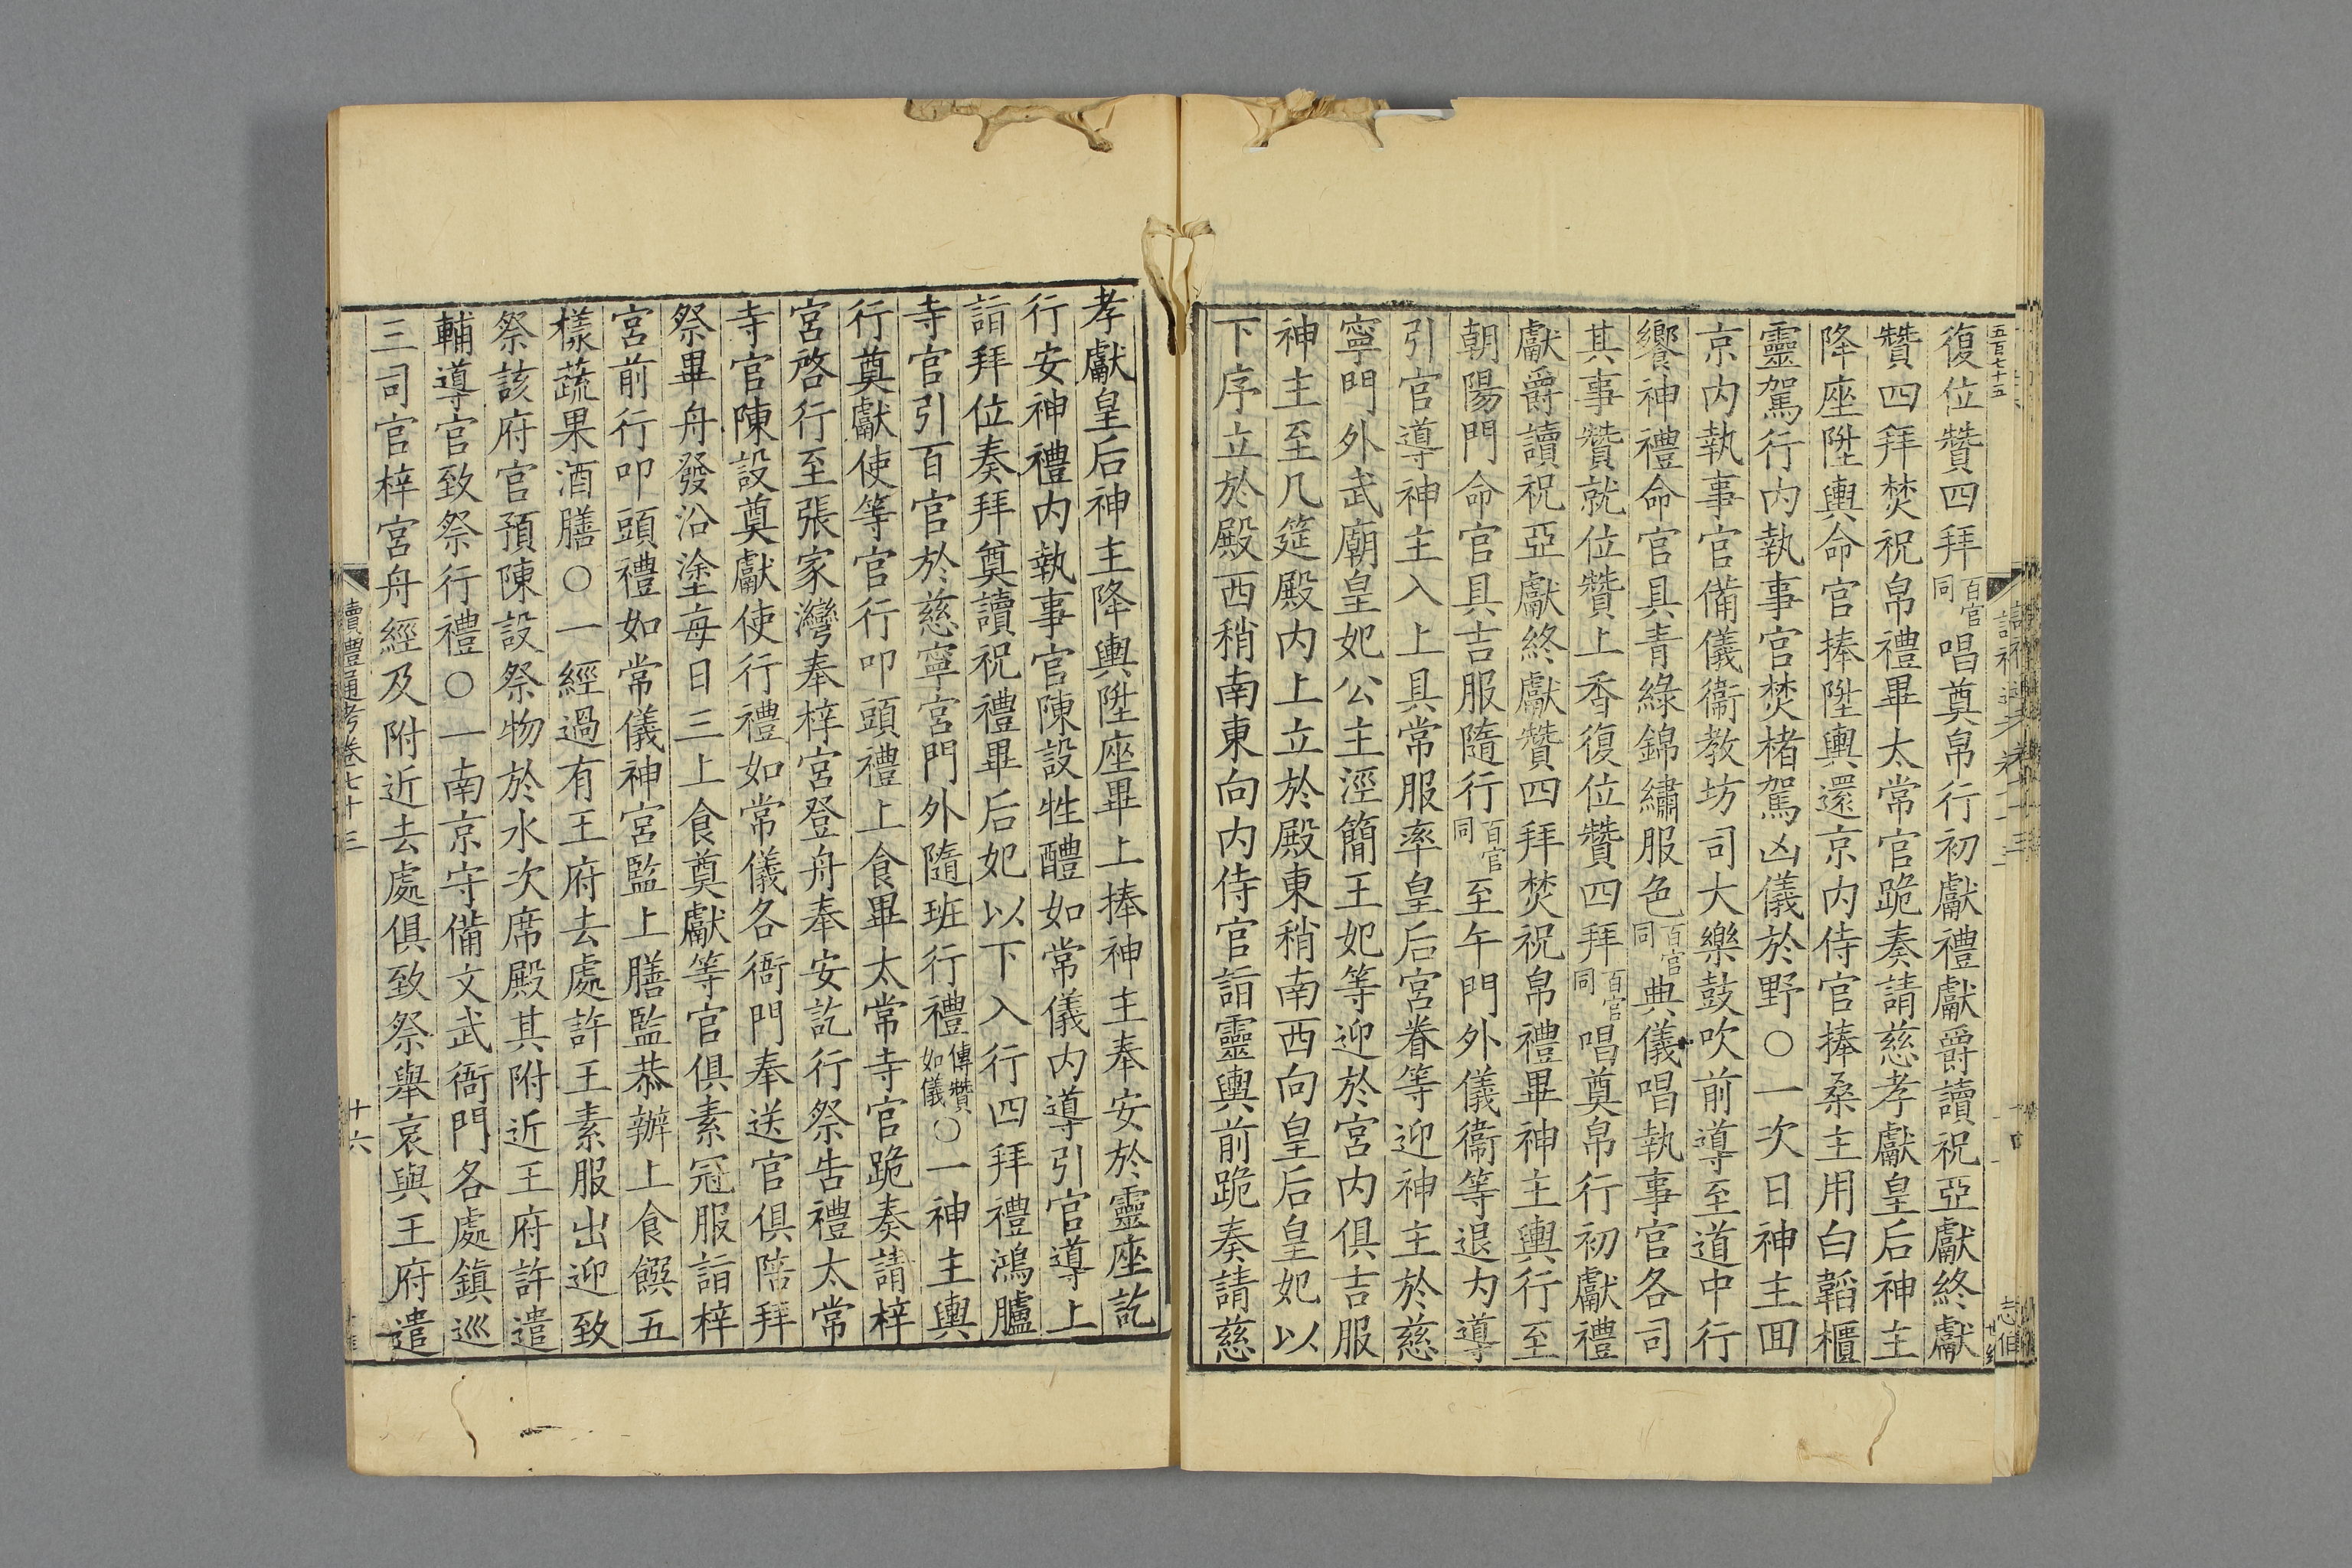 五百七十五
復位贊四拜百官同唱奠帛行初獻禮獻爵讀祝亞獻終獻
贊四拜焚祝帛禮畢太常官跪奏請慈孝獻皇后神主
降座陞輿命官捧陞輿還京内侍官捧桑主用白韜櫃
靈駕行内執事官焚楮駕凶儀於野○一次日神主回
京内執事官備儀衞教坊司大樂鼓吹前導至道中行
饗神禮命官具青綠錦繡服色百官同典儀唱執事官各司
其事贊就位贊上香復位贊四拜百官同唱奠帛行初獻禮
獻爵讀祝亞獻終獻贊四拜焚祝帛禮畢神主輿行至
朝陽門命官具吉服隨行百官同至午門外儀衞等退内導
引官導神主入上具常服率皇后宮眷等迎神主於慈
寧門外武廟皇妃公主涇簡王妃等迎於宮内俱吉服
神主至几筵殿内上立於殿東稍南西向皇后皇妃以
下序立於殿西稍南東向内侍官詣靈輿前跪奏請慈
孝獻皇后神主降輿陞座畢上捧神主奉安於靈座訖
行安神禮内執事官陳設牲醴如常儀内導引官導上
詣拜位奏拜奠讀祝禮畢后妃以下入行四拜禮鴻臚
寺官引百官於慈寧宮門外隨班行禮傳贊如儀○一神主輿
行奠獻使等官行叩頭禮上食畢太常寺官跪奏請梓
宮啓行至張家灣奉梓宮登舟奉安訖行祭告禮太常
寺官陳設奠獻使行禮如常儀各衙門奉送官俱陪拜
祭畢舟發沿塗每日三上食奠獻等官俱素冠服詣梓
宮前行叩頭禮如常儀神宮監上膳監恭辦上食饌五
樣蔬果酒膳○一經過有王府去處許王素服出迎致
祭該府官預陳設祭物於水次席殿其附近王府許遣
輔導官致祭行禮○一南京守備文武衙門各處鎮巡
三司官梓宮舟經及附近去處俱致祭舉哀與王府遣
讀禮通考卷七十三
十六